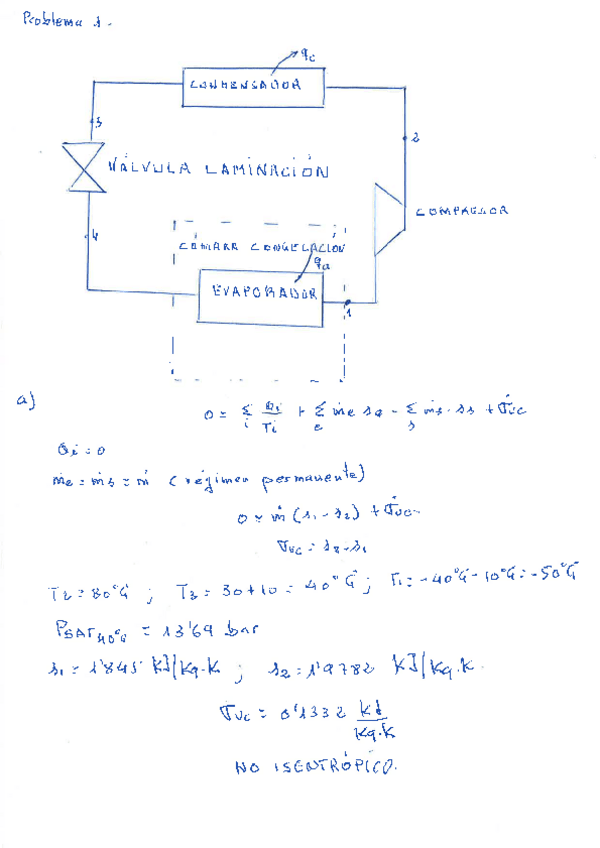 Problema 1.
qc
CONDENSADOR
3
2
VÁLVULA LAMINACIÓN
COMPRESOR
4
CÁMARA CONGELACIÓN
qa
EVAPORADOR
1
a)
0 = Σi Q̇i/Ti + Σe ṁe se - Σs ṁs · ss + σ̇vc
Qi = 0
ṁe = ṁs = ṁ (régimen permanente)
0 = ṁ (s1 - s2) + σ̇vc
σvc = s2 - s1
T2 = 80°C ; T3 = 30 + 10 = 40°C ; T1 = -40°C - 10°C = -50°C
PSAT40°C = 13'69 bar
s1 = 1'845 KJ/Kg.K ; s2 = 1'9782 KJ/Kg.K
σvc = 0'1332 kJ/Kg.K
NO ISENTRÓPICO.